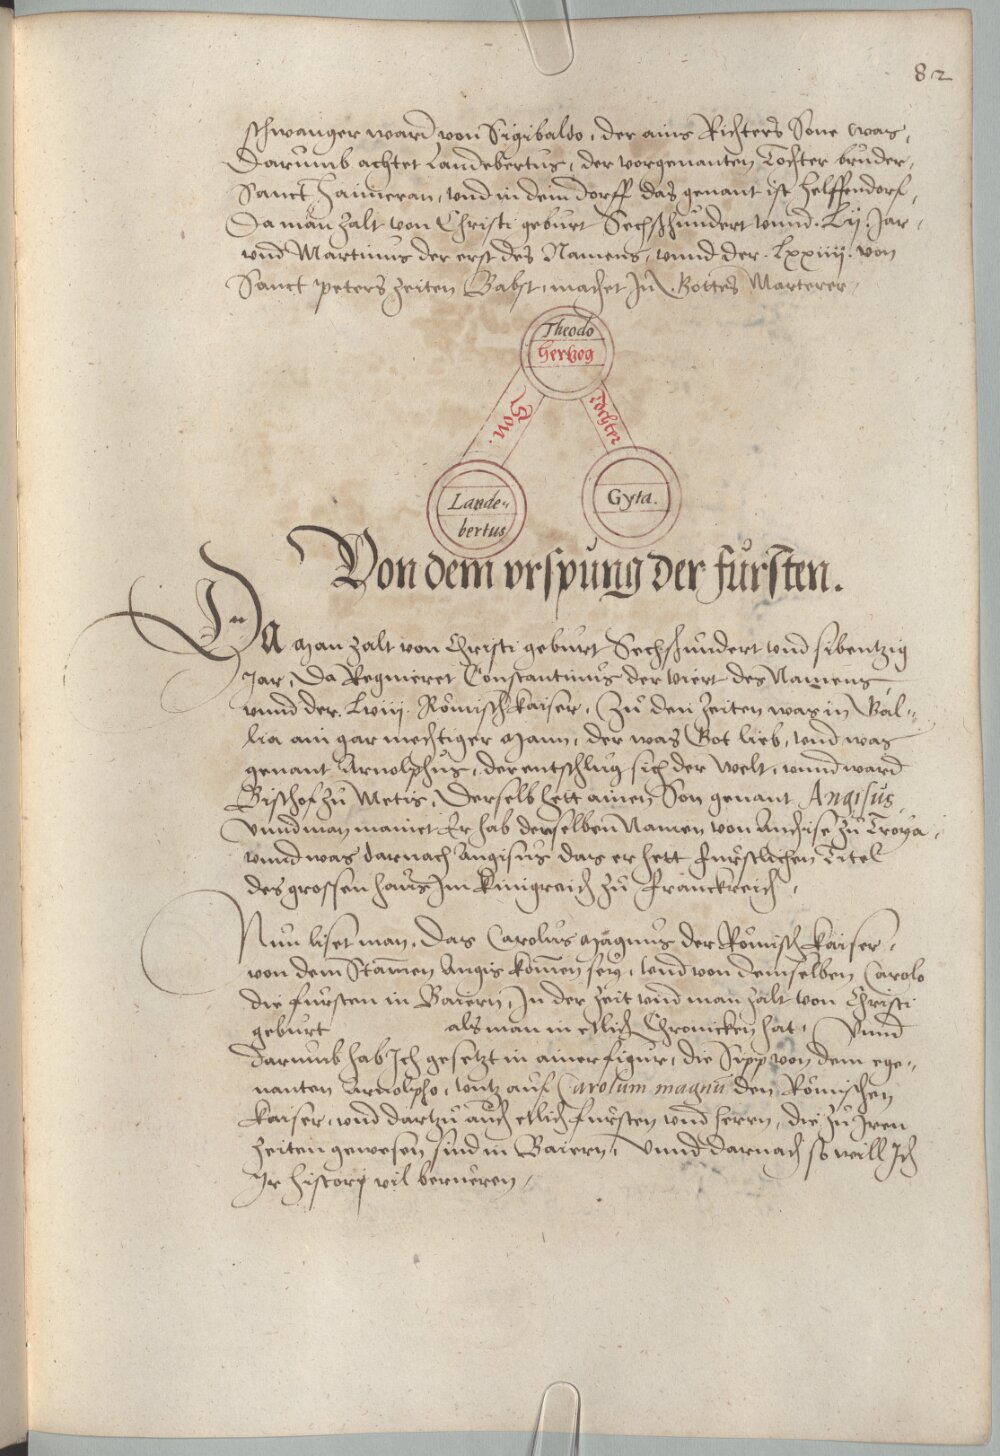 82
schwanger ward von Sigibaldo, der ains Richters Sone was,
Darumb achtet Landebertus, der vorgenanten Tochter bruder,
Sanct Haimeran, vnd in dem dorff das genant ist Helffendorf,
Da man zalt von Christi geburt Sechßhundert vnnd. Lij. Jar,
vnd Martinus der erst des Namens, vnnd der. Lxxiiij. von
Sanct peters zeiten Babst, machet In Gottes Marterer,
Theodo
Hertzog
Son.
tochter
Lande„
bertus
Gyta.
Von dem vrspung der fürsten.
Da man zalt von Christi geburt Sechßhundert vnd sibentzig
Jar, Da Regnieret Constantinus der viert des Namens,
vnnd der. Lviij. Römisch kaiser, Zu den zeiten was in Gal„
lia ain gar mechtiger Mann, der was Got lieb, vnd was
genant Arnolphus, der entschlug sich der welt, vnnd ward
Bischof zu Metis, Derselb hett ainen Son genant Angisus,
Vnnd man mainet Er hab denselben Namen von Anchise zu Troya,
vnnd was darnach Angisus das er hett fürstlichen Titel
des grossen haus Im Künigreich zu Franckreich,
Nun liset man, Das Carolus Magnus der Römisch kaiser,
von dem Stammen Angis kommen sey, vnd von demselben Carolo
die fürsten in Baiern, In der zeit vnd man zalt von Christi
geburt als man in etlich Chronicken hat, Vnnd
darumb hab Ich gesetzt in ainer figur, die Sipp von dem ege„
nanten Arnolpho, vntz auf Carolum magnū den Römischen
kaiser, vnd dartzu auch etlich fürsten vnd herrn, die zu Iren
zeiten gewesen sind in Baiern, Vnnd darnach so will Ich
Ir history vil berueren,